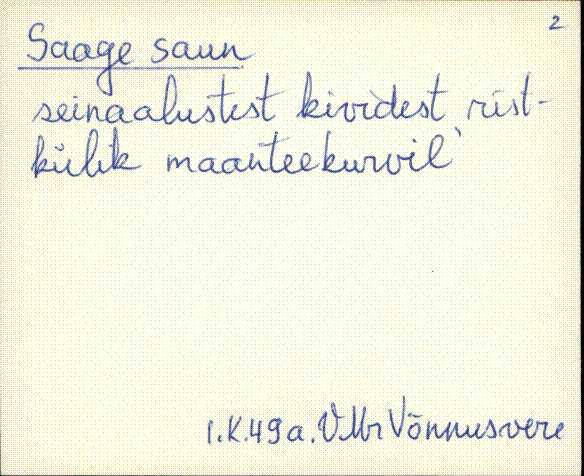 2
Saage saun
seinaalustest kividest rist-
külik maanteekurvil
I.K.49a. V.Mr Võnnusvere